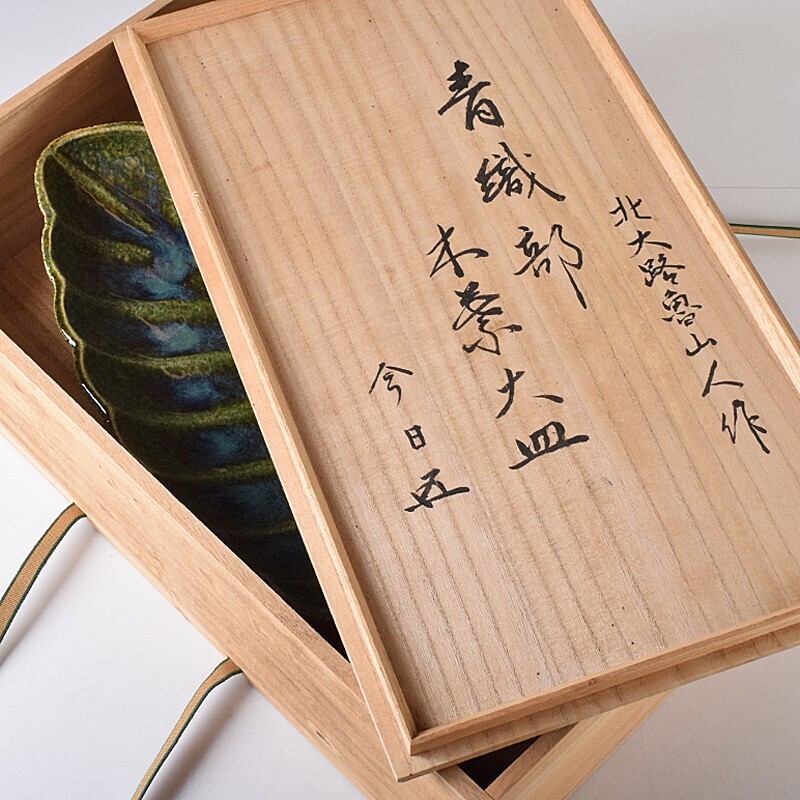 北大路魯山人作
青織部
木葉大皿
今日